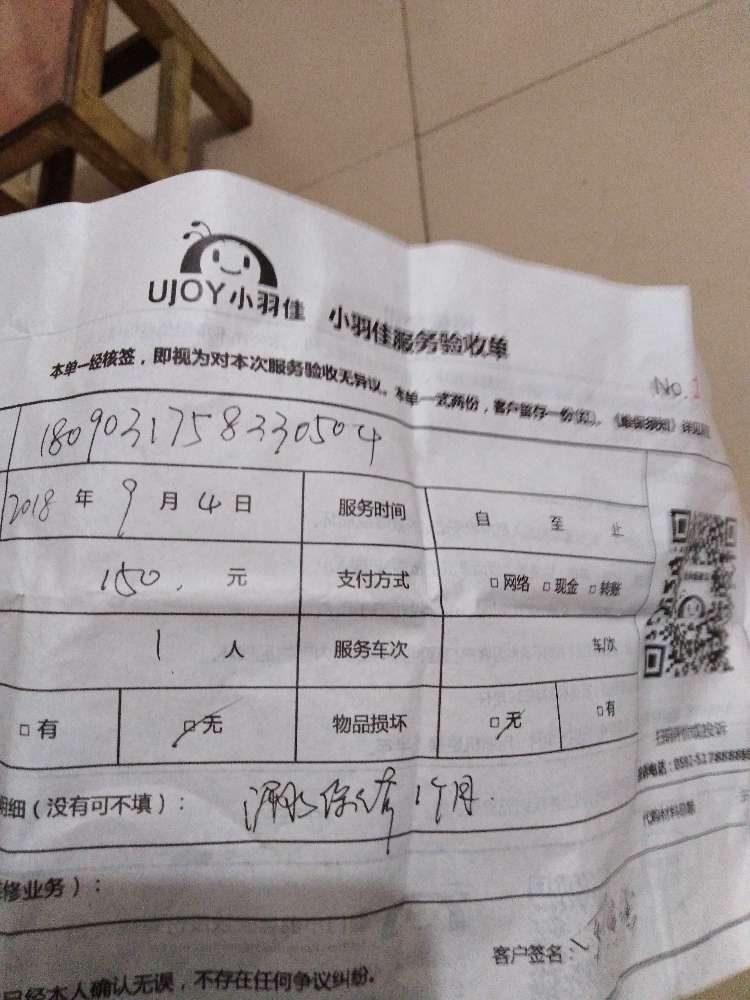 UJOY小羽佳 小羽佳服务验收单
No.1
本单一经核签，即视为对本次服务验收无异议。本单一式两份，客户留存一份(红)。《维保须知》详见
180903175833050504
2018 年 9 月 4 日 服务时间 自 至 止
150. 元 支付方式 □网络 □现金 □转账
1 人 服务车次 车次
□有 □无 物品损坏 □无 □有
扫码评价或投诉
明细（没有可不填）： 保修1个月
代购材料总额 元
修业务）：
客户签名：
已经本人确认无误，不存在任何争议纠纷。